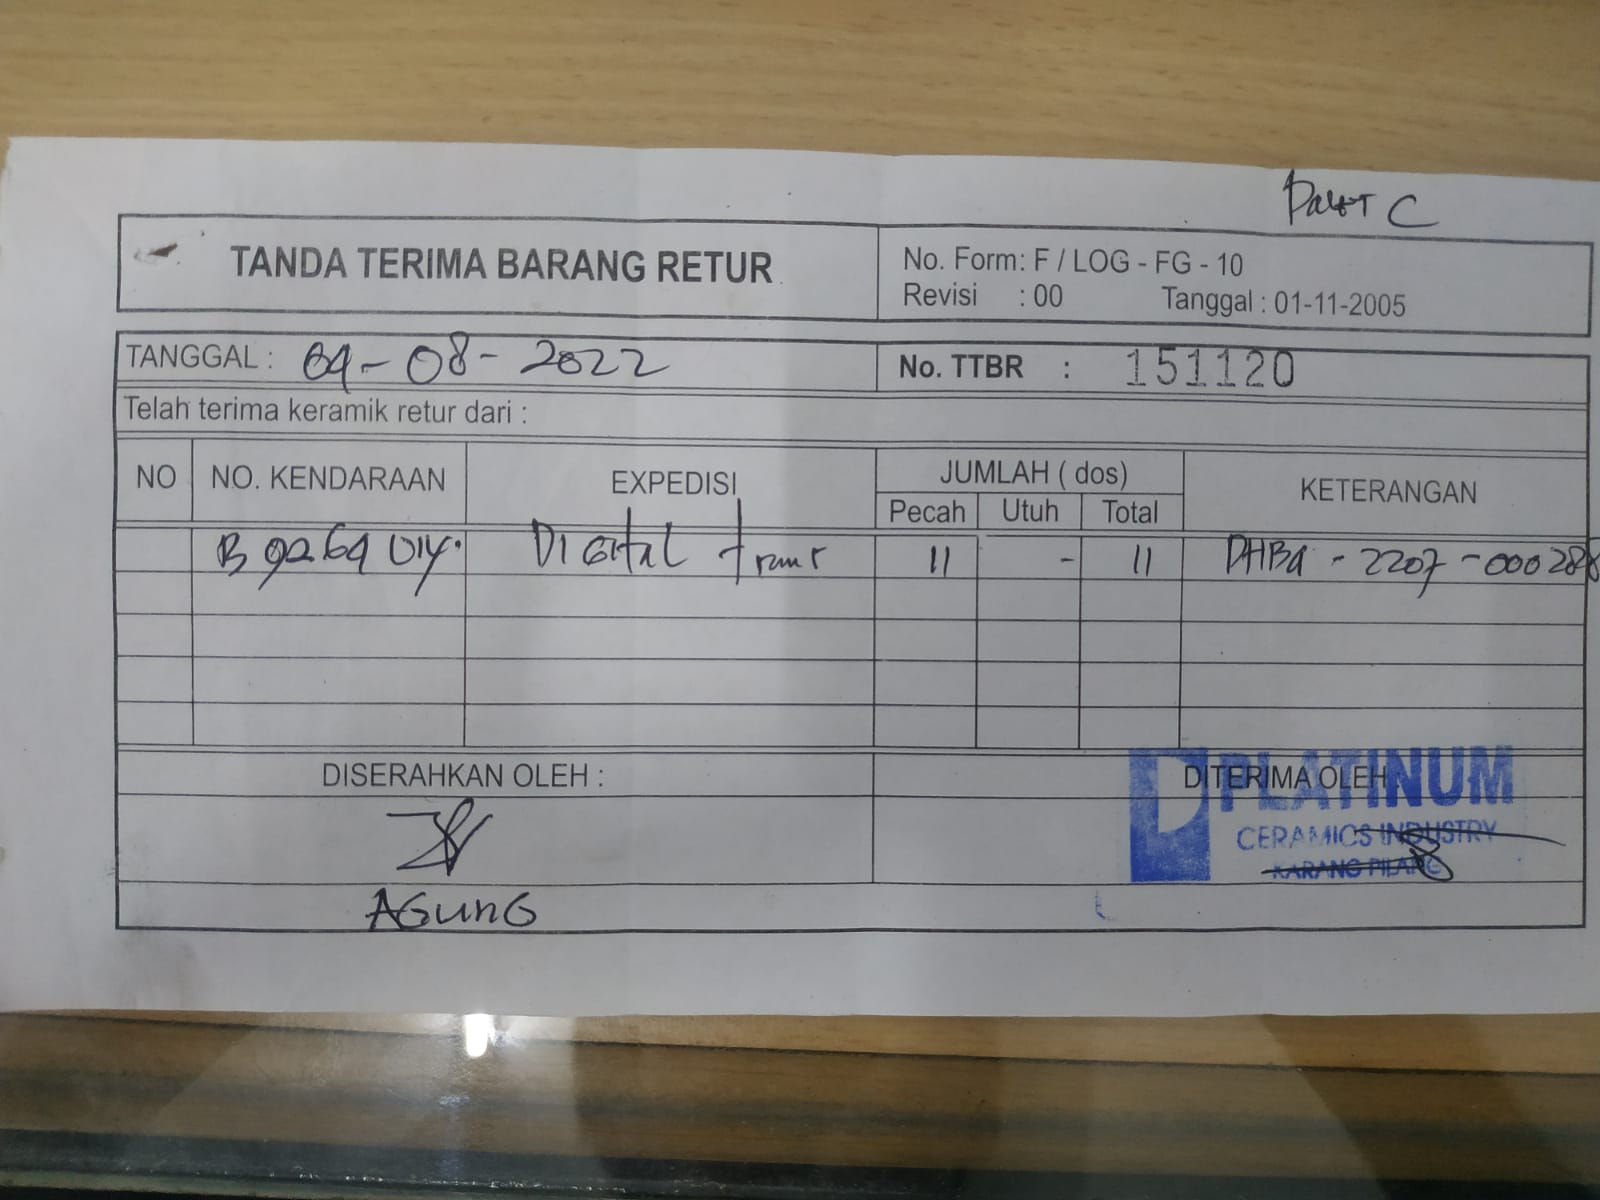 Palet C
TANDA TERIMA BARANG RETUR
No. Form: F / LOG - FG - 10
Revisi : 00 Tanggal : 01-11-2005
TANGGAL : 04-08-2022
No. TTBR : 151120
Telah terima keramik retur dari :
NO NO. KENDARAAN EXPEDISI JUMLAH ( dos) KETERANGAN
Pecah Utuh Total
B 9264 UIY. Digital 11 - 11 2207-000288
DISERAHKAN OLEH : DITERIMA OLEH
PLATINUM
CERAMICS INDUSTRY
KARANG PILANG
AGUNG